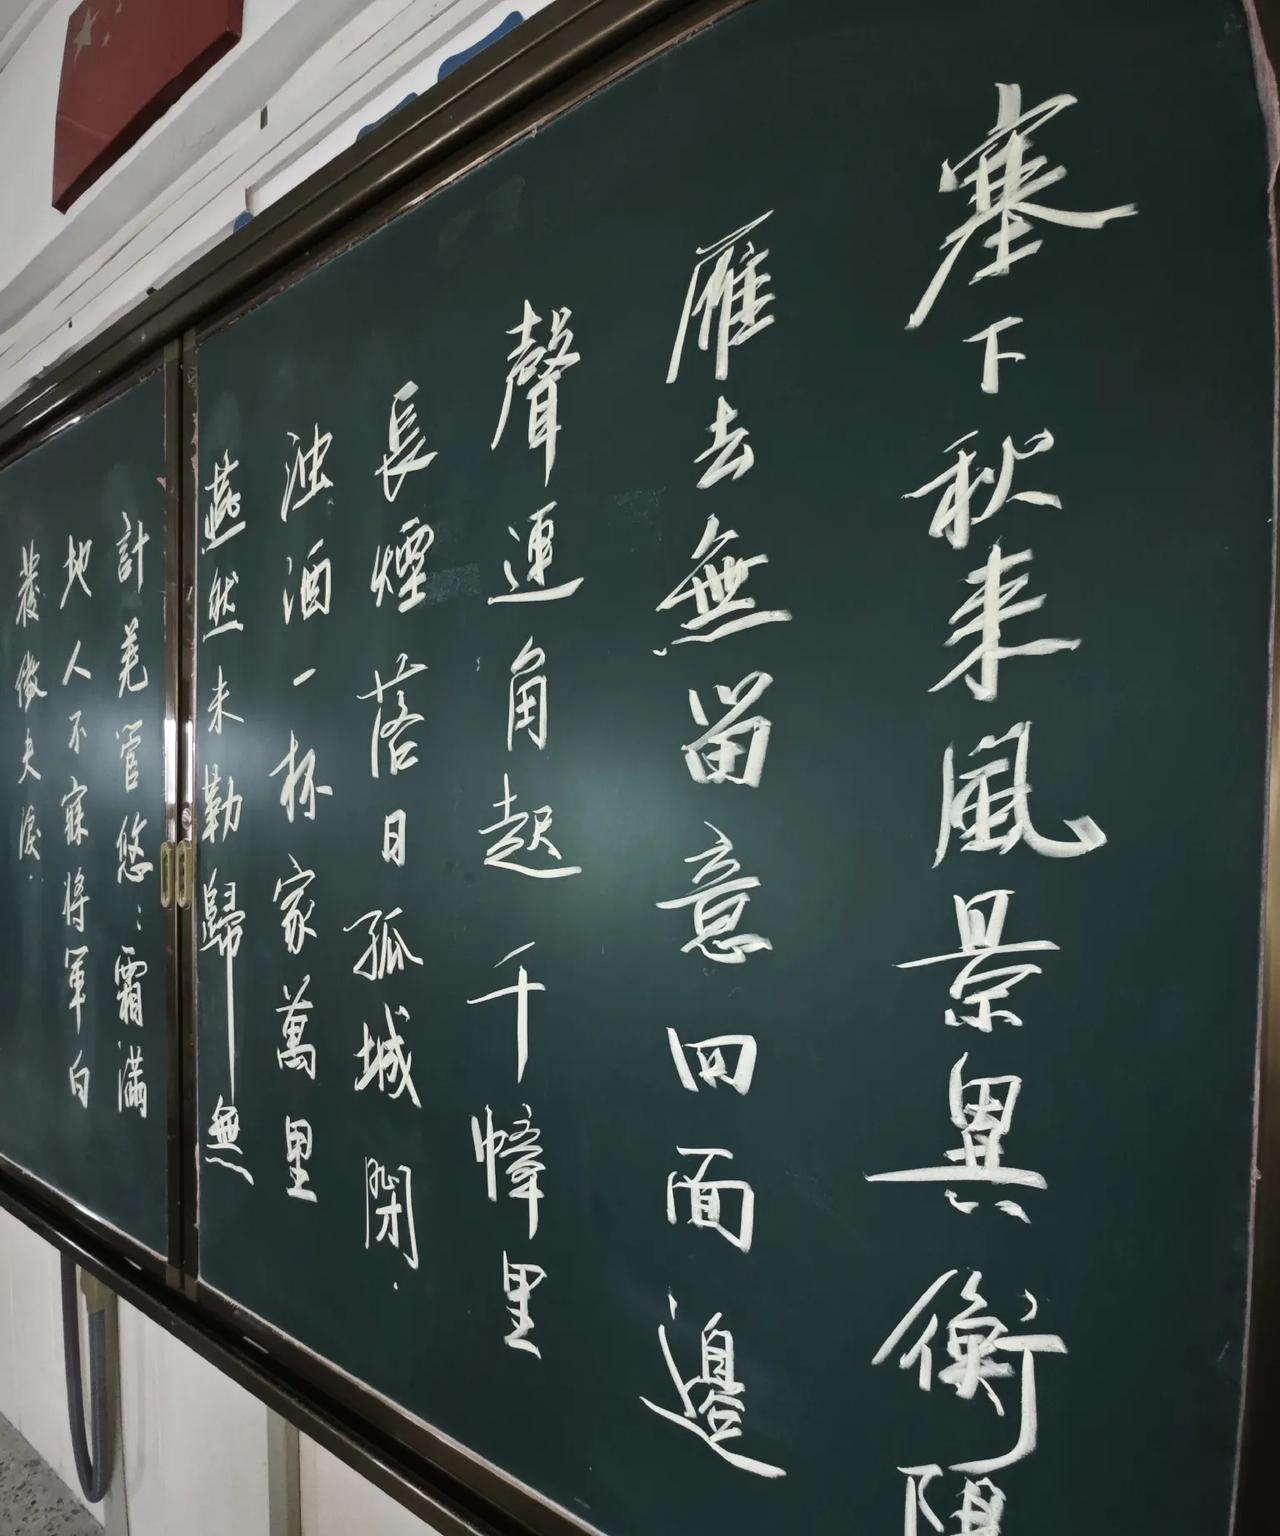 塞下秋来風景異衡陽
雁去無留意四面邊
聲連角起千幛里
長煙落日孤城閉.
浊酒一杯家萬里
燕然未勒歸無
計羌管悠:霜滿
地人不寐将軍白
髮徵夫淚.